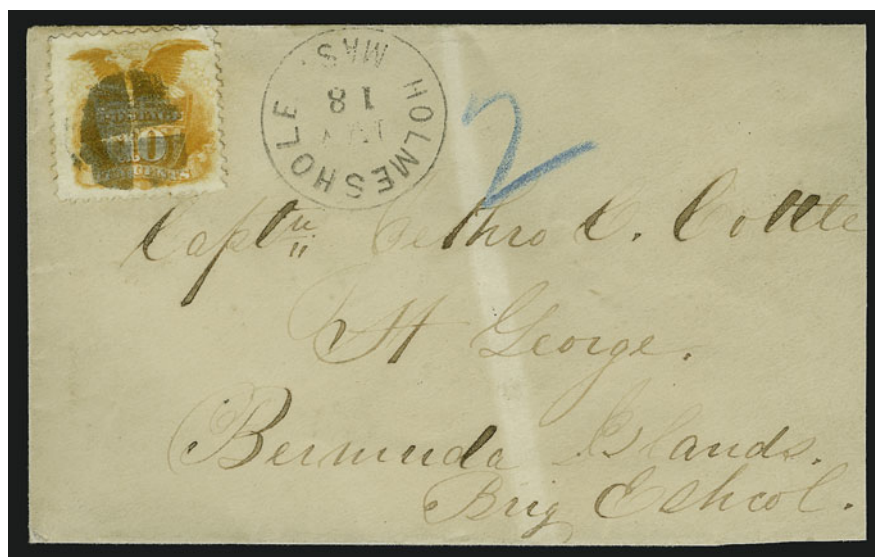 10
HOLMES HOLE MAS.
18
2
Captn Jethro C. Cottle
St George.
Bermuda Islands.
Brig Eshcol.